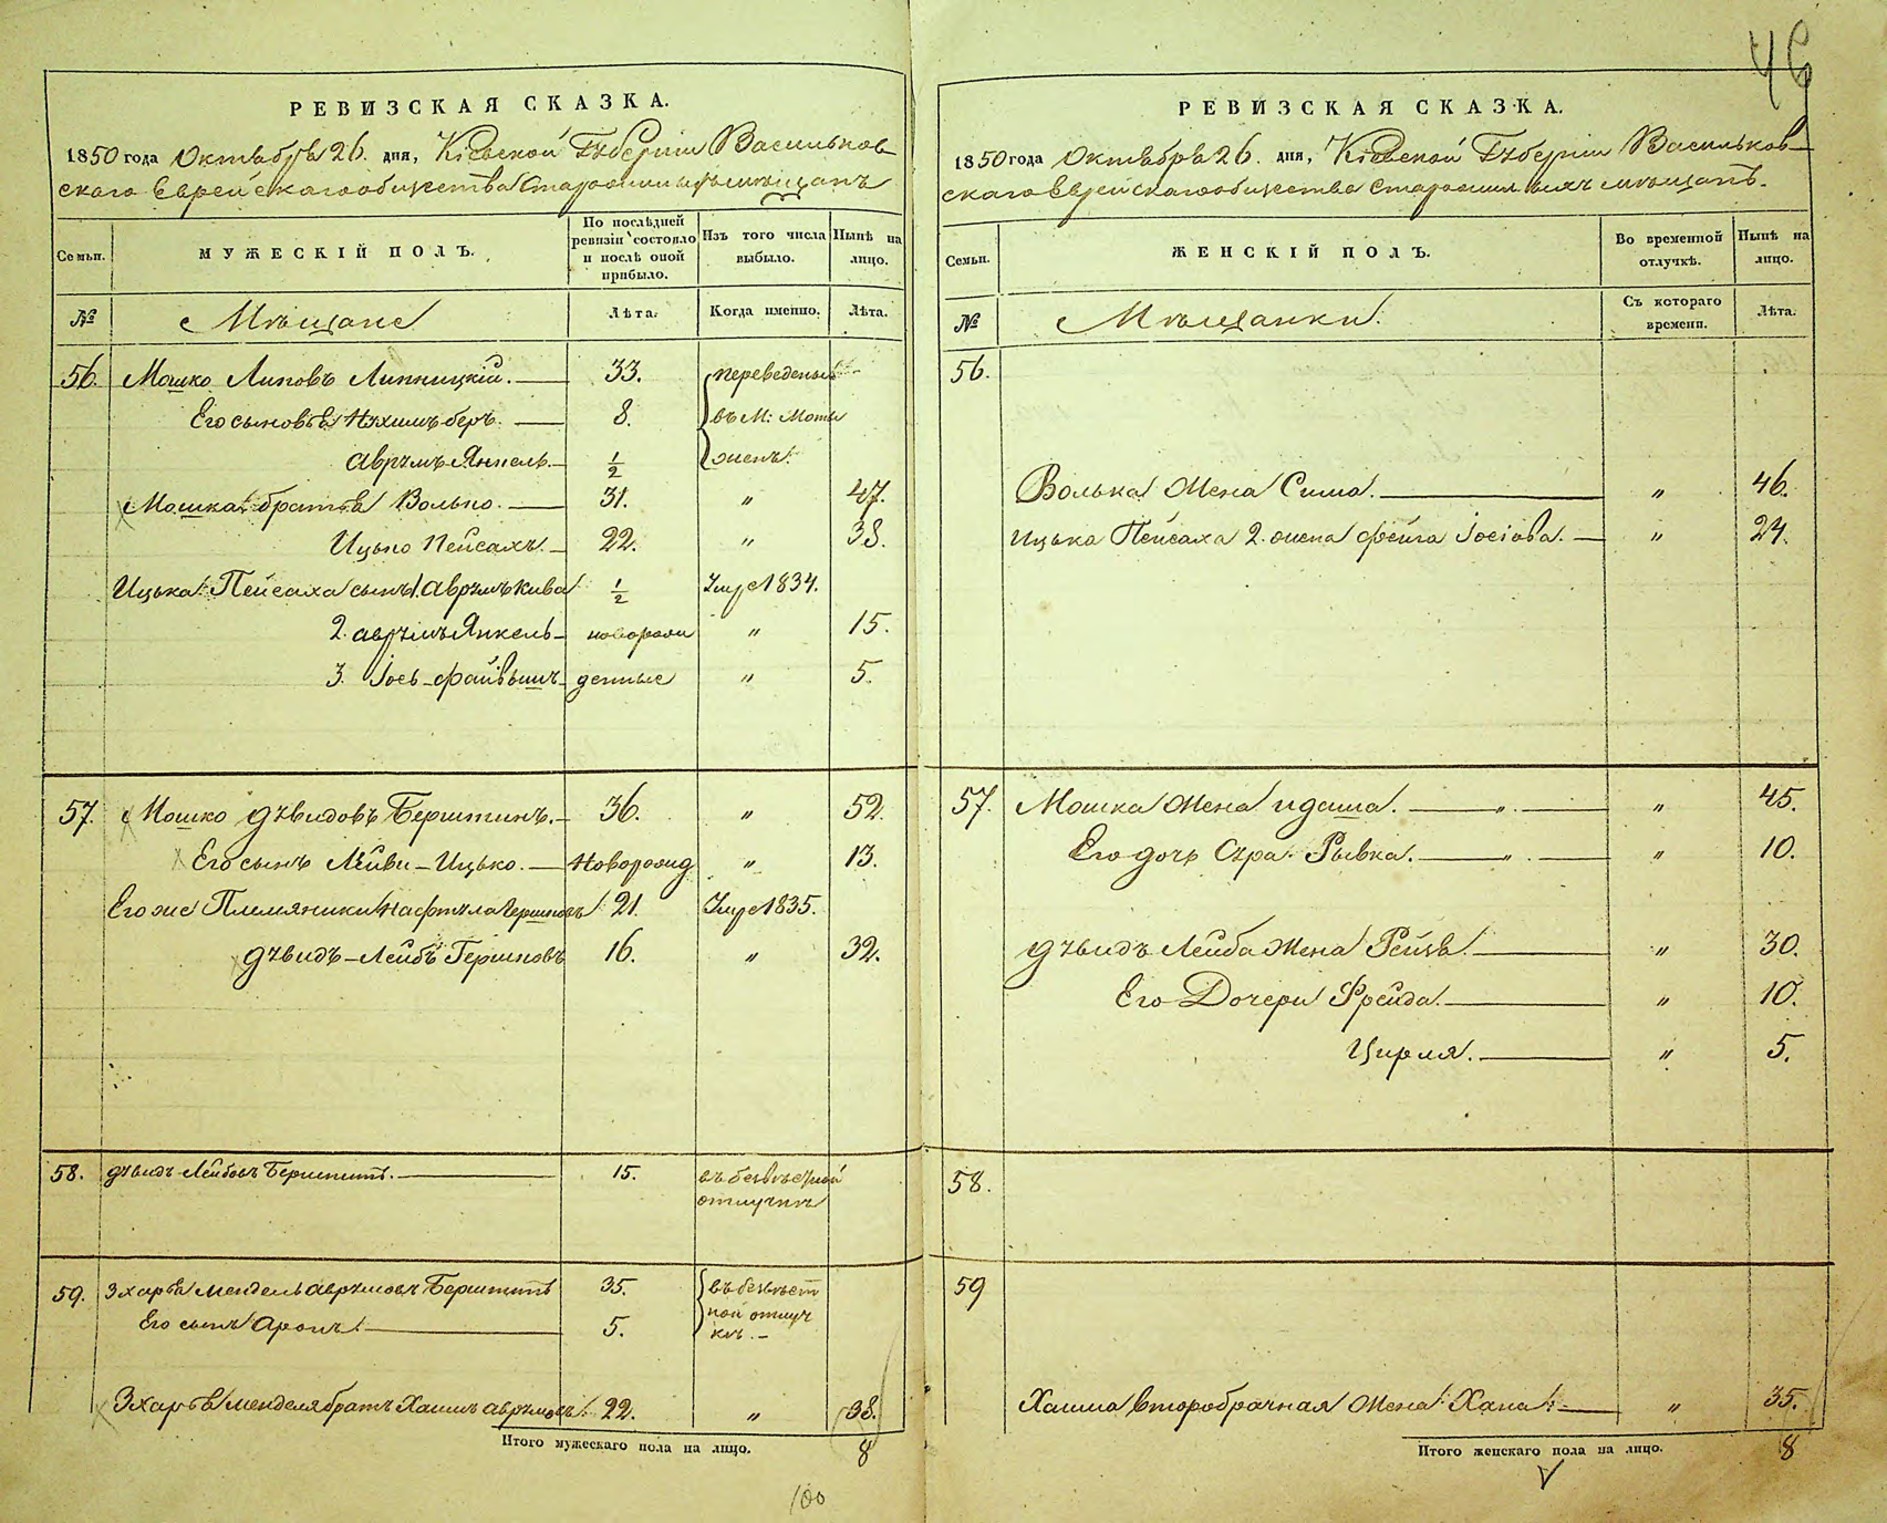 46
РЕВИЗСКАЯ СКАЗКА.
1850 года Октября 26. дня, Кіевской Губерніи Васильков-
скаго Еврейскаго общества Старошилыхъ мѣщанъ
Семьи.
МУЖЕСКІЙ ПОЛЪ.
По послѣдней ревизіи состояло и послѣ оной прибыло.
Изъ того числа выбыло.
Нынѣ на лицо.
№
Мѣщане
Лѣта.
Когда именно.
Лѣта.
56. Мошко Липовъ Липницкій. 33. переведены
Его сыновья Нухимъ беръ. 8. въ М:
Аврумъ Янкель. 1/2
Мошка братья Волько. 31. " 47.
Ицько Пейсахъ. 22. " 38.
Ицька Пейсаха сынъ 1. Аврумъ Кива 1/2 Умре 1834.
2. аврумъ Янкель новорож " 15.
3. Іось-файвышъ денные " 5.
57. Мошко Дувидовъ Берштинъ. 36. " 52.
Его сынъ Лейви-Ицько. Новорожд " 13.
Его же Племяники Нафтула Гершковъ 21. Умре 1835.
Дувидъ-Лейбъ Гершковъ 16. " 32.
58. Дувидъ Лейбовъ Берштинъ. 15. въ безвѣстной
отлучкѣ
59. Зхарья Мендель Аврумовъ Берштинъ 35. въ безвѣст
Его сынъ Аронъ. 5. ной отлуч
кѣ.-
Зхарья Менделя братъ Хаимъ аврумовъ. 22. " 38.
Итого мужескаго пола на лицо. 8
100
РЕВИЗСКАЯ СКАЗКА.
1850 года Октября 26. дня, Кіевской Губерніи Васильков-
скаго Еврейскаго общества Старошилыхъ мѣщанъ.
Семьи.
ЖЕНСКІЙ ПОЛЪ.
Во временной отлучкѣ.
Нынѣ на лицо.
№
Мѣщанки.
Съ котораго времени.
Лѣта.
56.
Волька Жена Сима. " 46.
Ицька Пейсаха 2. жена Фейга Іосіова. " 24.
57. Мошка Жена Идаша. " " 45.
Его дочь Сура Рывка. " " 10.
Дувидъ Лейба Жена Рейзя. " 30.
Его Дочери Фрейда. " 10.
Цирля. " 5.
58.
59
Хаима второбрачная Жена Хана. " 35.
Итого женскаго пола на лицо. 8